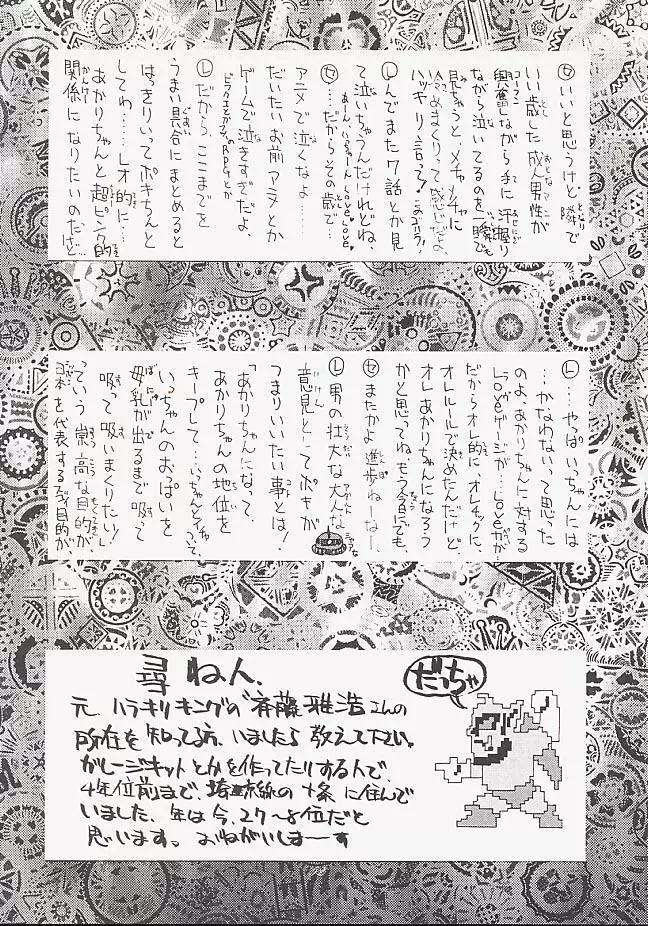 セ いいと思うけど隣で
いい歳した成人男性が
興奮しながら手に汗握り
ながら泣いてるのを一瞬でも
見ちゃうと、メチャメチャに
あんまりって感じだよ、
ハッキリ言って!
レ んでまた7話とか見
て泣いちゃうんだけれどね、
セ …だからその歳で…
アニメで泣くなよ…
だいたいお前アニメとか
ゲームで泣きすぎだよ、
RPGとか
レ だから、ここまでを
うまい具合にまとめると
はっきりいってポキちんと
してわ……レオ的に……
あかりちゃんと超ピンク的
関係になりたいのだけど…
レ …やっぱいっちゃんには
…かなわないって思った
のよ、あかりちゃんに対する
Loveゲージが…Loveがが
だからオレ的に、オレチックに、
オレルールで決めたんだけど、
オレあかりちゃんになろう
かと思ってね、もう今日にでも、
セ またかよ進歩ねーなー、
レ 男の壮大な大人な
意見としてポキが
つまりいいたい事とは!
「あかりちゃんになって、
あかりちゃんの地位を
キープして、いっちゃんとイチャついて、
いっちゃんのおぱいを
母乳が出るまで吸って
吸って吸いまくりたい!」
っていう崇高な目的が、
日本を代表する目的が、
尋ねん、
元、ハラキリキングの"斉藤雅浩さんの
所在を知ってる方、いましたら教えて下さい。
ガレージキットとかを作ってたりする人で、
4年位前まで、埼京線の十条に住んで
いました、年は今、27〜8位だと
思います。おねがいしまーす
だっちゃ